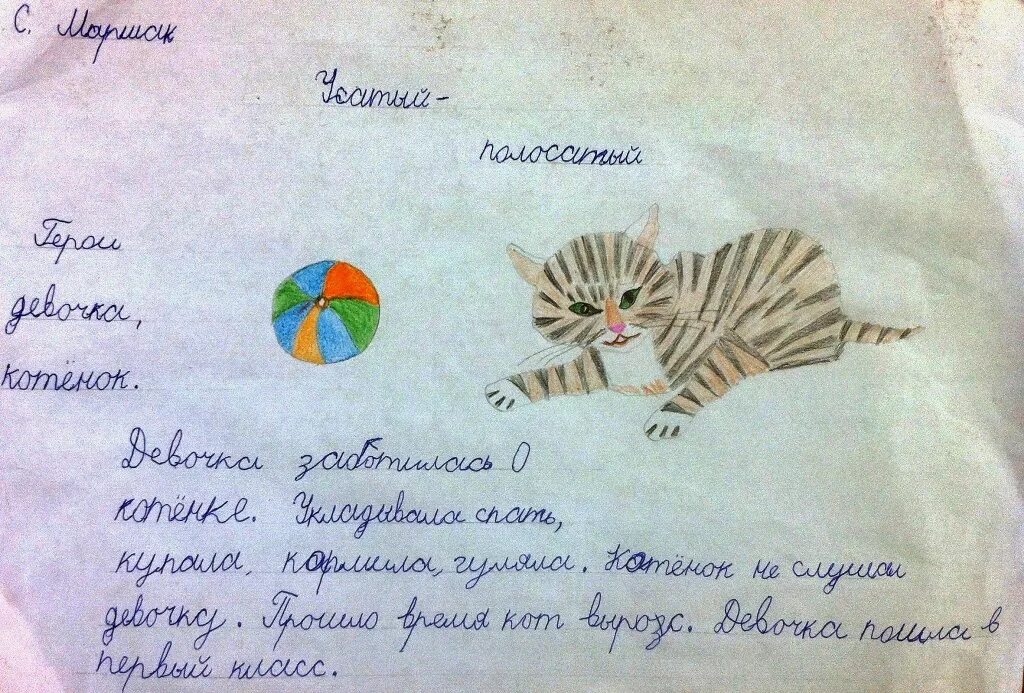 С. Маршак
Усатый-
полосатый
Герои
девочка,
котёнок.
Девочка заботилась О
котёнке. Укладывала спать,
купала, кормила, гуляла. Котёнок не слушал
девочку. Прошло время кот вырозс. Девочка пошла в
первый класс.